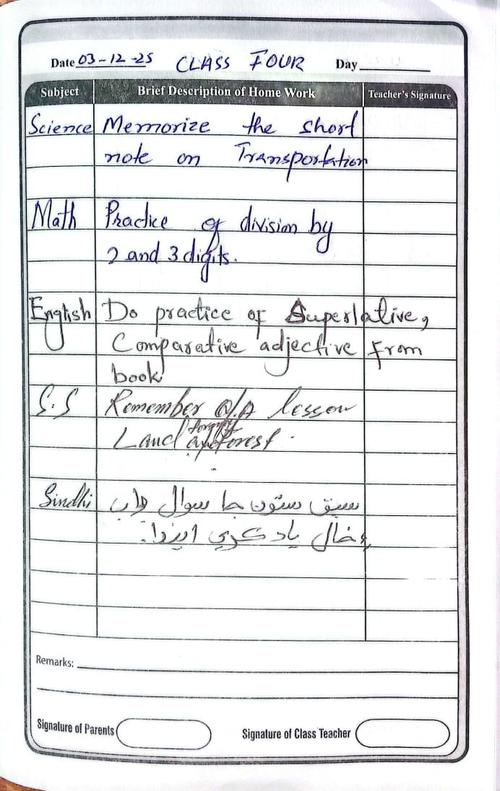 Date 03-12-25 CLASS FOUR Day
Subject Brief Description of Home Work Teacher's Signature
Science Memorize the short
note on Transportation
Math Practice of division by
2 and 3 digits.
English Do practice of Superlative,
Comparative adjective from
book
S.S Remember Q/A lesson
Land forest.
Sindhi سبق ستون جا سوال جواب
۽ خال ياد ڪري ايندا.
Remarks:
Signature of Parents Signature of Class Teacher